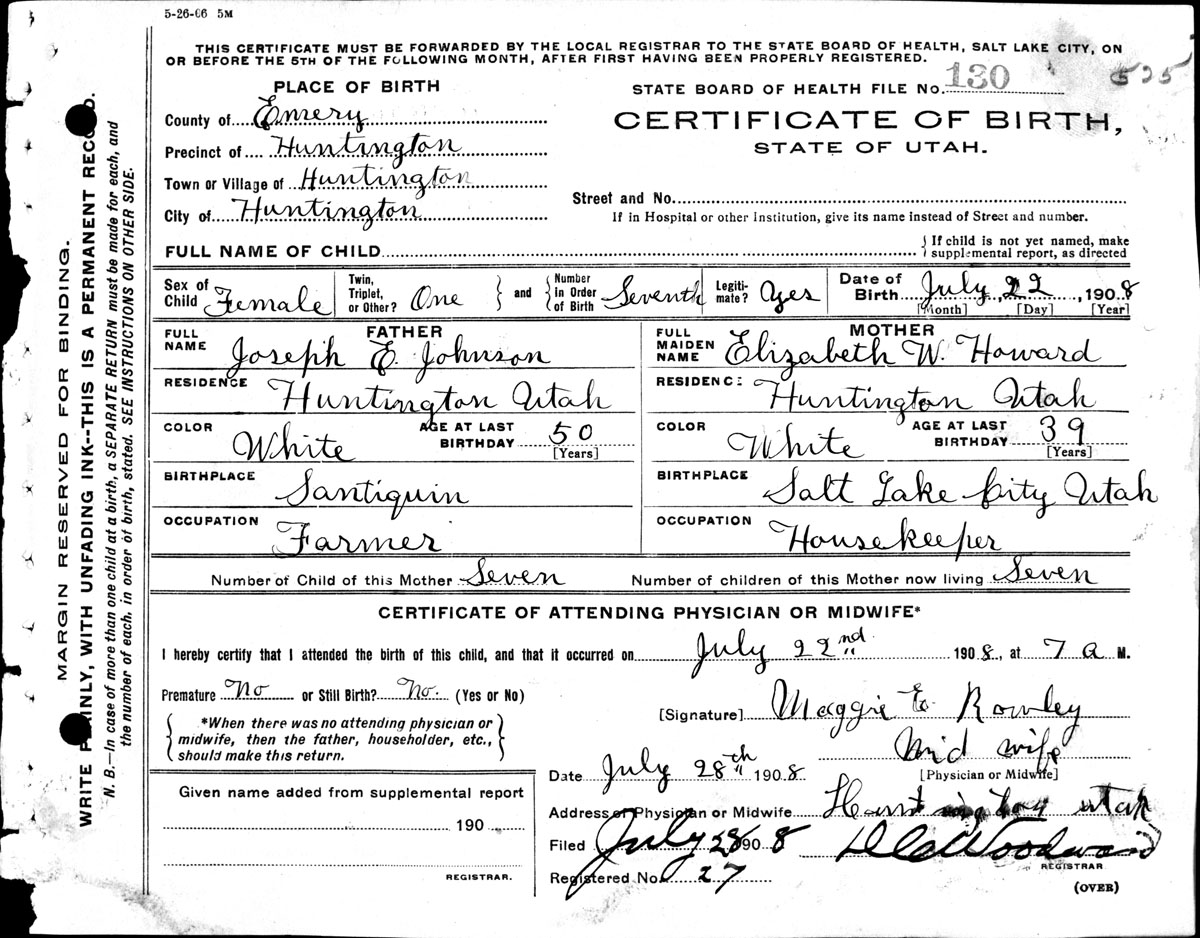 5-26-06 5M
THIS CERTIFICATE MUST BE FORWARDED BY THE LOCAL REGISTRAR TO THE STATE BOARD OF HEALTH, SALT LAKE CITY, ON
OR BEFORE THE 5TH OF THE FOLLOWING MONTH, AFTER FIRST HAVING BEEN PROPERLY REGISTERED.
525
PLACE OF BIRTH
STATE BOARD OF HEALTH FILE No. 130
County of Emery
CERTIFICATE OF BIRTH,
STATE OF UTAH.
Precinct of Huntington
Town or Village of Huntington
City of Huntington
Street and No.
If in Hospital or other Institution, give its name instead of Street and number.
FULL NAME OF CHILD
If child is not yet named, make
supplemental report, as directed
Sex of Child Female
Twin, Triplet, or Other? One
and
Number in Order of Birth Seventh
Legiti-mate? Yes
Date of Birth July 22, 1908
[Month] [Day] [Year]
FATHER
FULL NAME Joseph E. Johnson
RESIDENCE Huntington Utah
COLOR White AGE AT LAST BIRTHDAY 50
[Years]
BIRTHPLACE Santiquin
OCCUPATION Farmer
MOTHER
FULL MAIDEN NAME Elizabeth W. Howard
RESIDENCE Huntington Utah
COLOR White AGE AT LAST BIRTHDAY 39
[Years]
BIRTHPLACE Salt Lake City Utah
OCCUPATION Housekeeper
Number of Child of this Mother Seven Number of children of this Mother now living Seven
CERTIFICATE OF ATTENDING PHYSICIAN OR MIDWIFE*
I hereby certify that I attended the birth of this child, and that it occurred on July 22nd 1908, at 7 a M.
Premature No or Still Birth? No. (Yes or No)
*When there was no attending physician or
midwife, then the father, householder, etc.,
should make this return.
[Signature] Maggie E Rowley
Mid wife
[Physician or Midwife]
Date July 28th 1908
Address of Physician or Midwife Huntington utah
Filed July 28 1908 D C Woodward
REGISTRAR
Registered No. 27
(OVER)
Given name added from supplemental report
190
REGISTRAR.
MARGIN RESERVED FOR BINDING.
WRITE PLAINLY, WITH UNFADING INK--THIS IS A PERMANENT RECORD.
N. B.—In case of more than one child at a birth, a SEPARATE RETURN must be made for each, and
the number of each, in order of birth, stated. SEE INSTRUCTIONS ON OTHER SIDE.